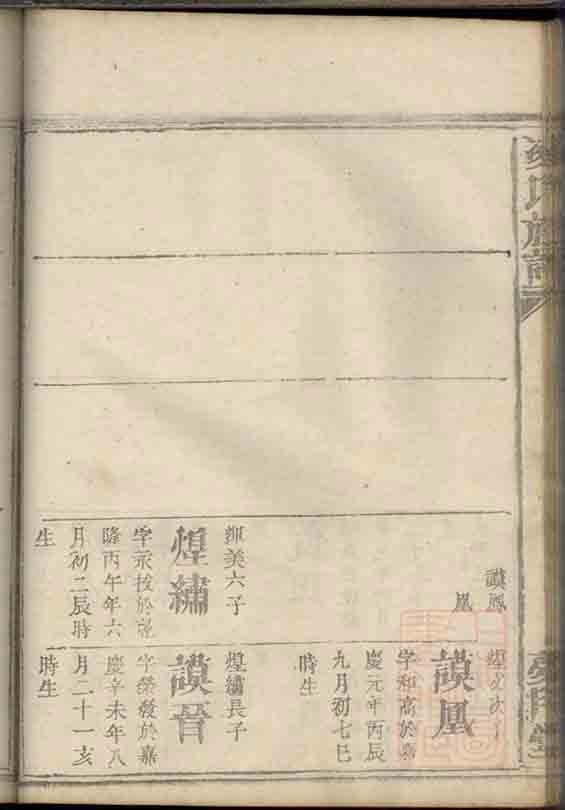 氏族譜
謨鳳
凰
緝美六子
煌繡
字永拔於乾
隆丙午年六
月初二辰時
生
次子
謨凰
字和高於嘉
慶元年丙辰
九月初七巳
時生
煌繡長子
謨晉
字榮發於嘉
慶辛未年八
月二十一亥
時生